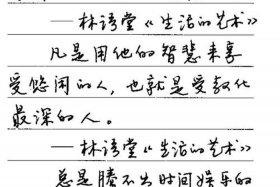 ——林语堂《生活的艺术》
凡是用他的智慧来享
受悠闲的人，也就是受教化
最深的人。
——林语堂《生活的艺术》
总是腾不出时间娱乐的